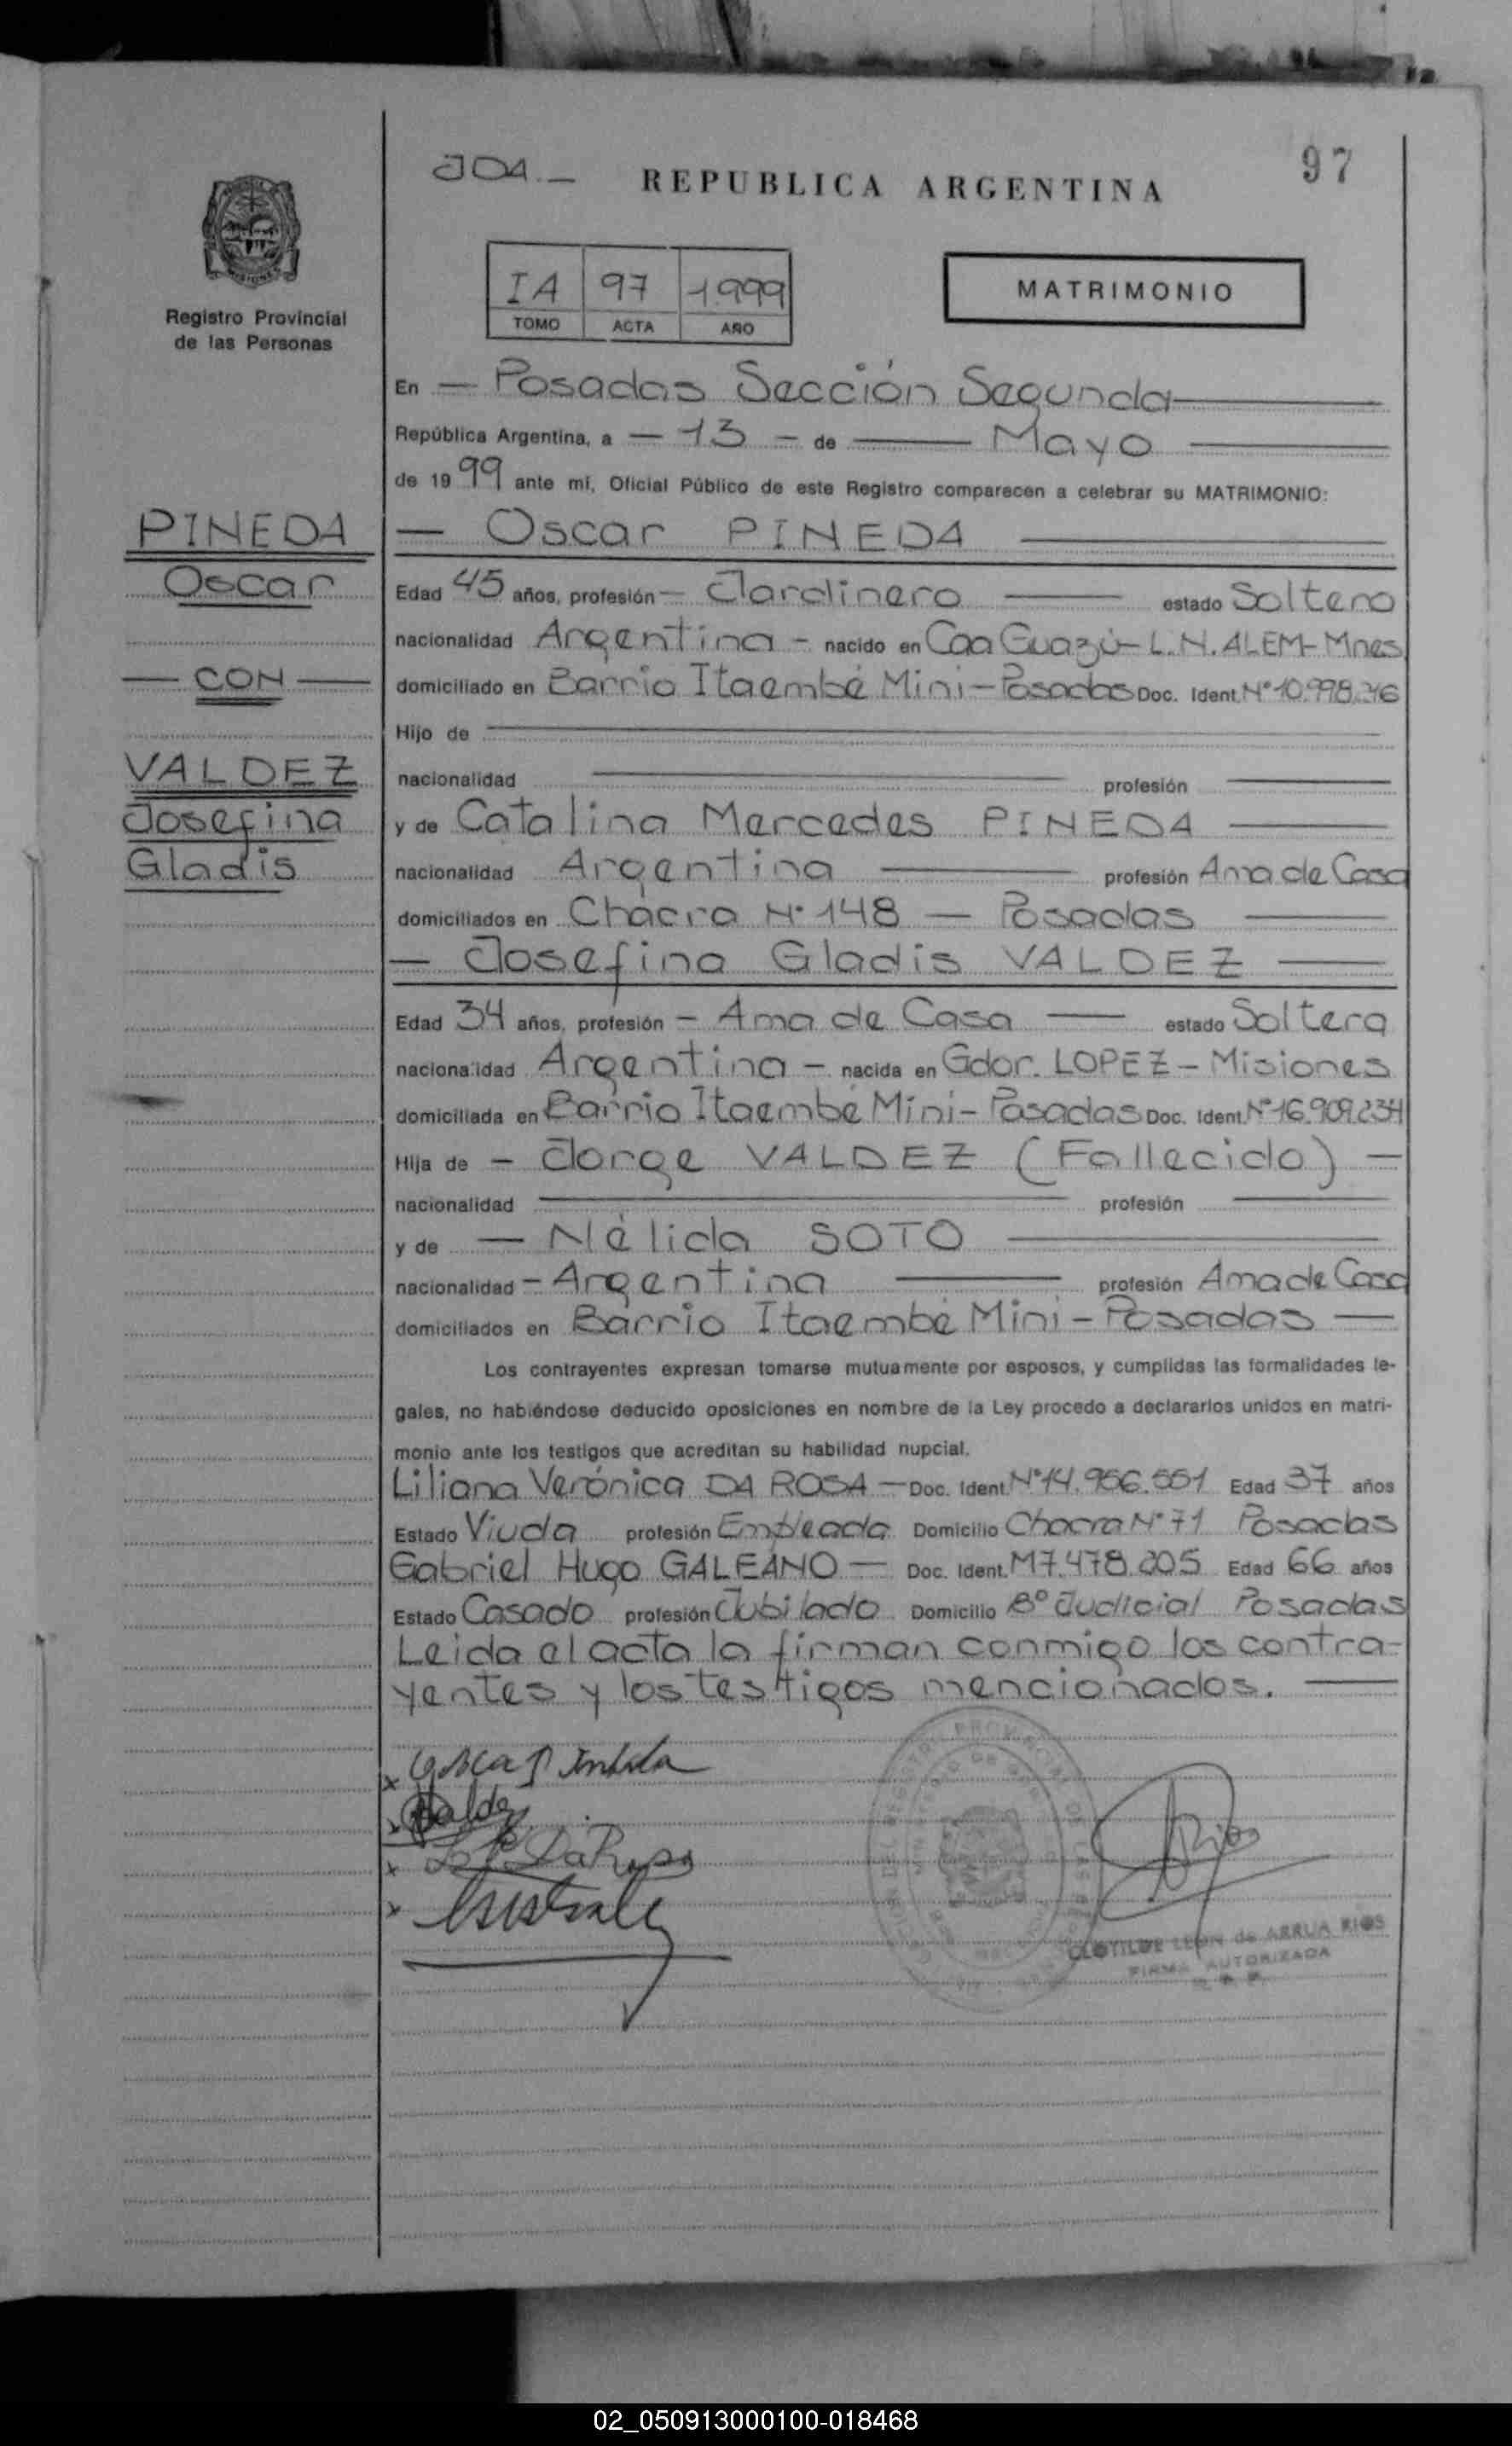 JOA.—
REPUBLICA ARGENTINA
97
Registro Provincial
de las Personas
IA 97 1.999
TOMO ACTA AÑO
MATRIMONIO
En — Posadas Sección Segunda
República Argentina, a — 13 — de — Mayo
de 1999 ante mí, Oficial Público de este Registro comparecen a celebrar su MATRIMONIO:
PINEDA
Oscar
— CON —
VALDEZ
Josefina
Gladis
— Oscar PINEDA
Edad 45 años, profesión — Jardinero — estado Soltero
nacionalidad Argentina — nacido en Caa Guazú - L.N. ALEM - Mnes
domiciliado en Barrio Itaembé Mini - Posadas Doc. Ident. Nº 10.998.
Hijo de
nacionalidad profesión
y de Catalina Mercedes PINEDA
nacionalidad Argentina — profesión Ama de Casa
domiciliados en Chacra Nº 148 — Posadas
— Josefina Gladis VALDEZ —
Edad 34 años, profesión — Ama de Casa — estado Soltera
nacionalidad Argentina — nacida en Gdor. LOPEZ - Misiones
domiciliada en Barrio Itaembé Mini - Posadas Doc. Ident. Nº 16.909.234
Hija de — Jorge VALDEZ (Fallecido) —
nacionalidad profesión
y de — Nélida SOTO
nacionalidad — Argentina — profesión Ama de Casa
domiciliados en Barrio Itaembé Mini - Posadas —
Los contrayentes expresan tomarse mutuamente por esposos, y cumplidas las formalidades le-
gales, no habiéndose deducido oposiciones en nombre de la Ley procedo a declararlos unidos en matri-
monio ante los testigos que acreditan su habilidad nupcial.
Liliana Verónica DA ROSA — Doc. Ident. Nº 14.956.551 Edad 37 años
Estado Viuda profesión Empleada Domicilio Chacra Nº 71 Posadas
Gabriel Hugo GALEANO — Doc. Ident. M7.478.205 Edad 66 años
Estado Casado profesión Jubilado Domicilio Bº Judicial Posadas
Leida el acta la firman conmigo los contra-
yentes y los testigos mencionados. —
CLOTILDE LEON de ARRUA RIOS
FIRMA AUTORIZADA
02_050913000100-018468